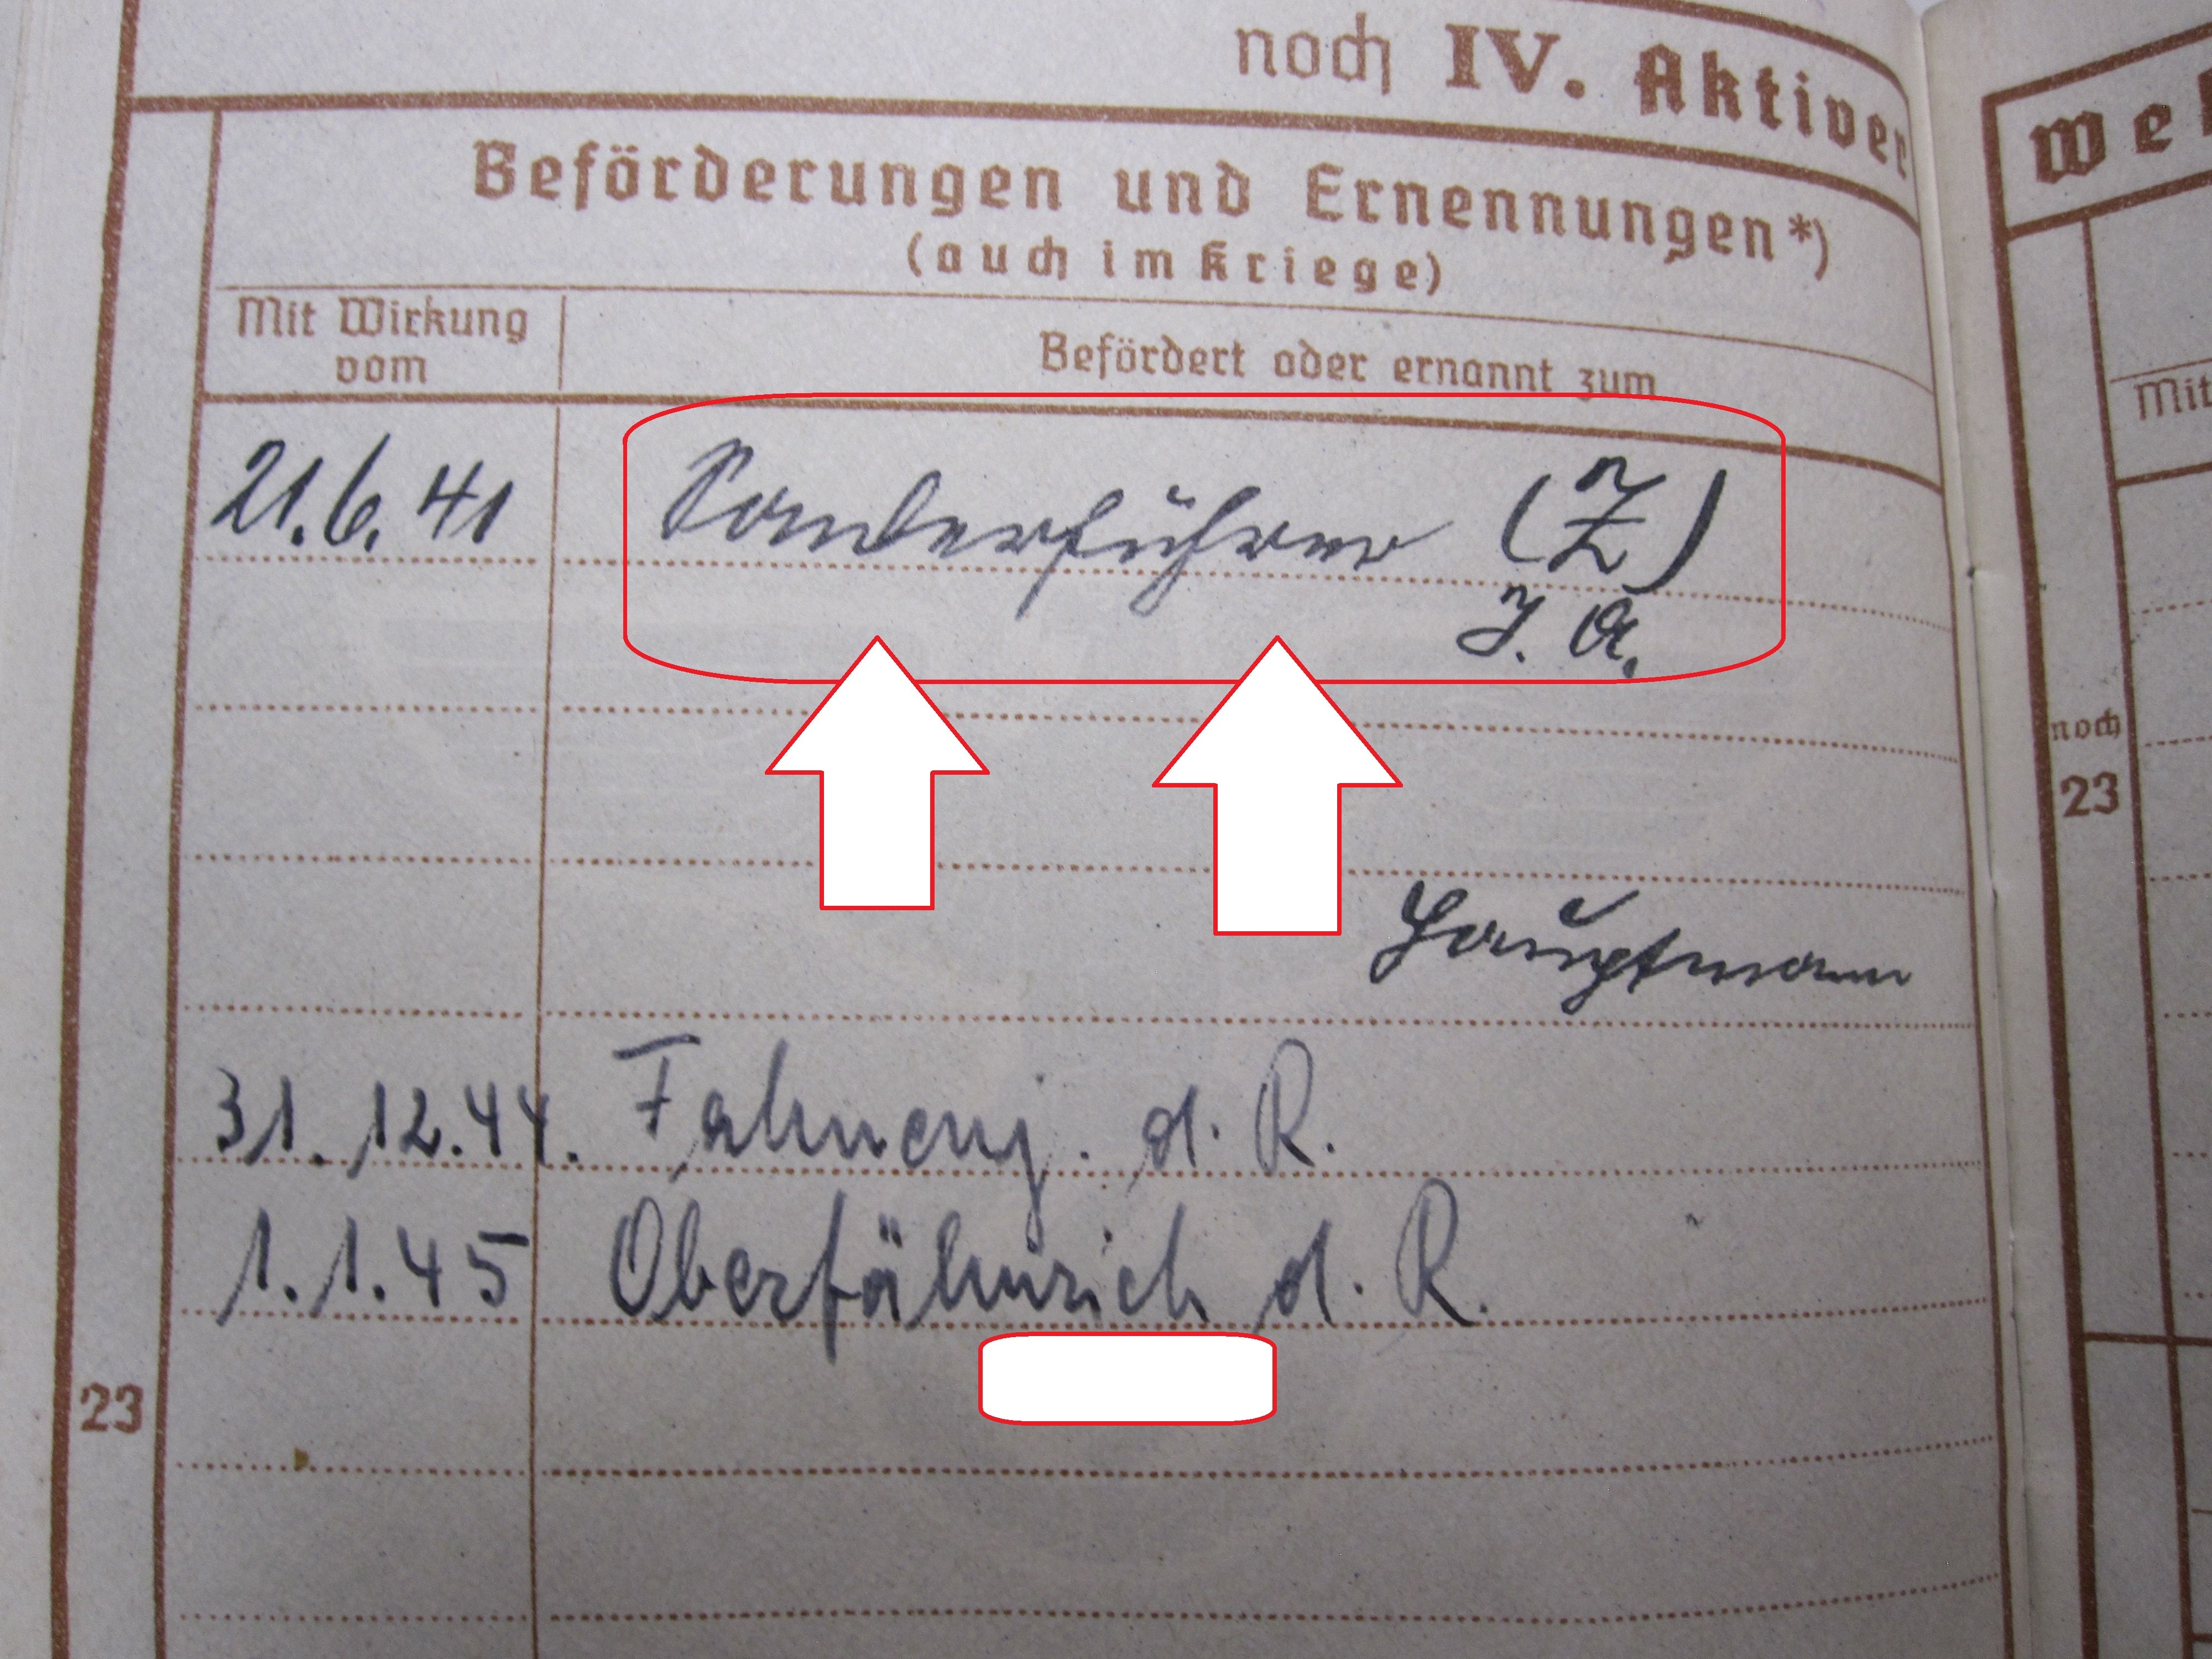 noch IV. Aktiver
Beförderungen und Ernennungen*)
(auch im Kriege)
Mit Wirkung
vom
Befördert oder ernannt zum
21.6.41 Sonderführer (Z)
J. A.
Hauptmann
31.12.44. Fahnenj. d. R.
1.1.45 Oberfähnrich d. R.
23
We
Mit
noch
23